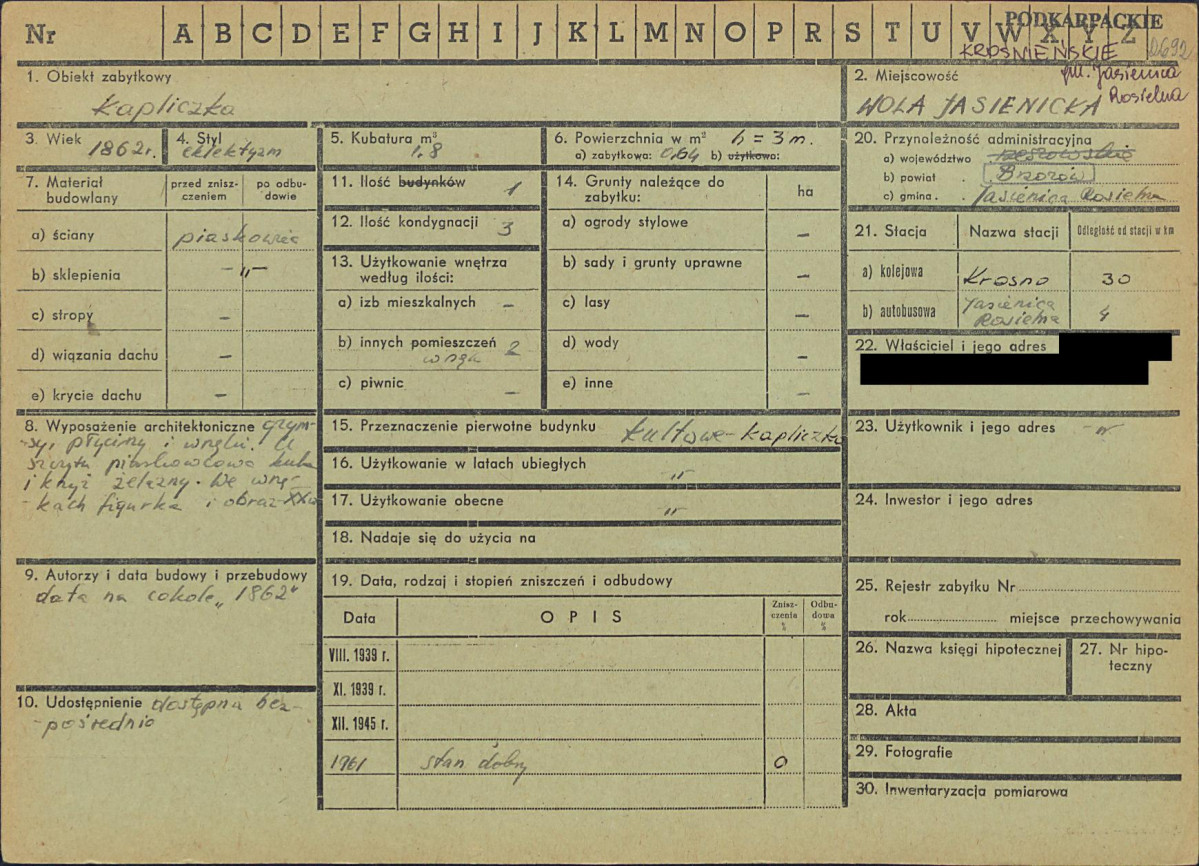 Nr A B C D E F G H I J K L M N O P R S T U V W X Y Z
PODKARPACKIE
KROŚNIEŃSKIE
gm. Jasienica
Rosielna
1. Obiekt zabytkowy
Kapliczka
2. Miejscowość
WOLA JASIENICKA
3. Wiek
1862 r.
4. Styl
eklektyzm
5. Kubatura m³
1,8
6. Powierzchnia w m² h = 3 m.
a) zabytkowa: 0,64 b) użytkowa:
7. Materiał budowlany
przed zniszczeniem
po odbudowie
a) ściany piaskowiec
b) sklepienia -"-
c) stropy –
d) wiązania dachu –
e) krycie dachu –
8. Wyposażenie architektoniczne gzym-
-sy, płyciny i wnęki. U
szczytu piaskowcowa kula
i krzyż żelazny. We wnę-
-kach figurka i obraz XX w
9. Autorzy i data budowy i przebudowy
data na cokole „1862"
10. Udostępnienie dostępna bez-
-pośrednio
11. Ilość budynków 1
12. Ilość kondygnacji 3
13. Użytkowanie wnętrza
według ilości:
a) izb mieszkalnych –
b) innych pomieszczeń 2
wnęk
c) piwnic –
14. Grunty należące do
zabytku:
ha
a) ogrody stylowe –
b) sady i grunty uprawne –
c) lasy –
d) wody –
e) inne –
15. Przeznaczenie pierwotne budynku kultowe-kapliczka
16. Użytkowanie w latach ubiegłych -"-
17. Użytkowanie obecne -"-
18. Nadaje się do użycia na
19. Data, rodzaj i stopień zniszczeń i odbudowy
Data
OPIS
Zniszczenia %
Odbudowa %
VIII. 1939 r.
XI. 1939 r.
XII. 1945 r.
1961 stan dobry 0
20. Przynależność administracyjna
a) województwo rzeszowskie
b) powiat . Brzozów
c) gmina . . Jasienica Rosielna
21. Stacja
Nazwa stacji
Odległość od stacji w km
a) kolejowa Krosno 30
b) autobusowa Jasienica
Rosielna 4
22. Właściciel i jego adres
23. Użytkownik i jego adres -"-
24. Inwestor i jego adres
25. Rejestr zabytku Nr
rok miejsce przechowywania
26. Nazwa księgi hipotecznej
27. Nr hipo-
teczny
28. Akta
29. Fotografie
30. Inwentaryzacja pomiarowa